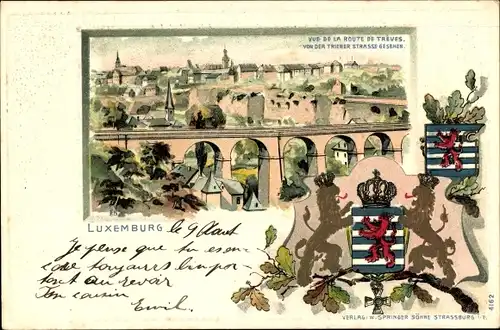 VUE DE LA ROUTE DE TRÈVES.
VON DER TRIERER STRASSE GESEHEN.
LUXEMBURG le 9 Aout
Je pense que tu es en
core toujours
tout au revoir
Ton cousin
Emil.
VERLAG: W. SPRINGER SÖHNE STRASSBURG i. E.